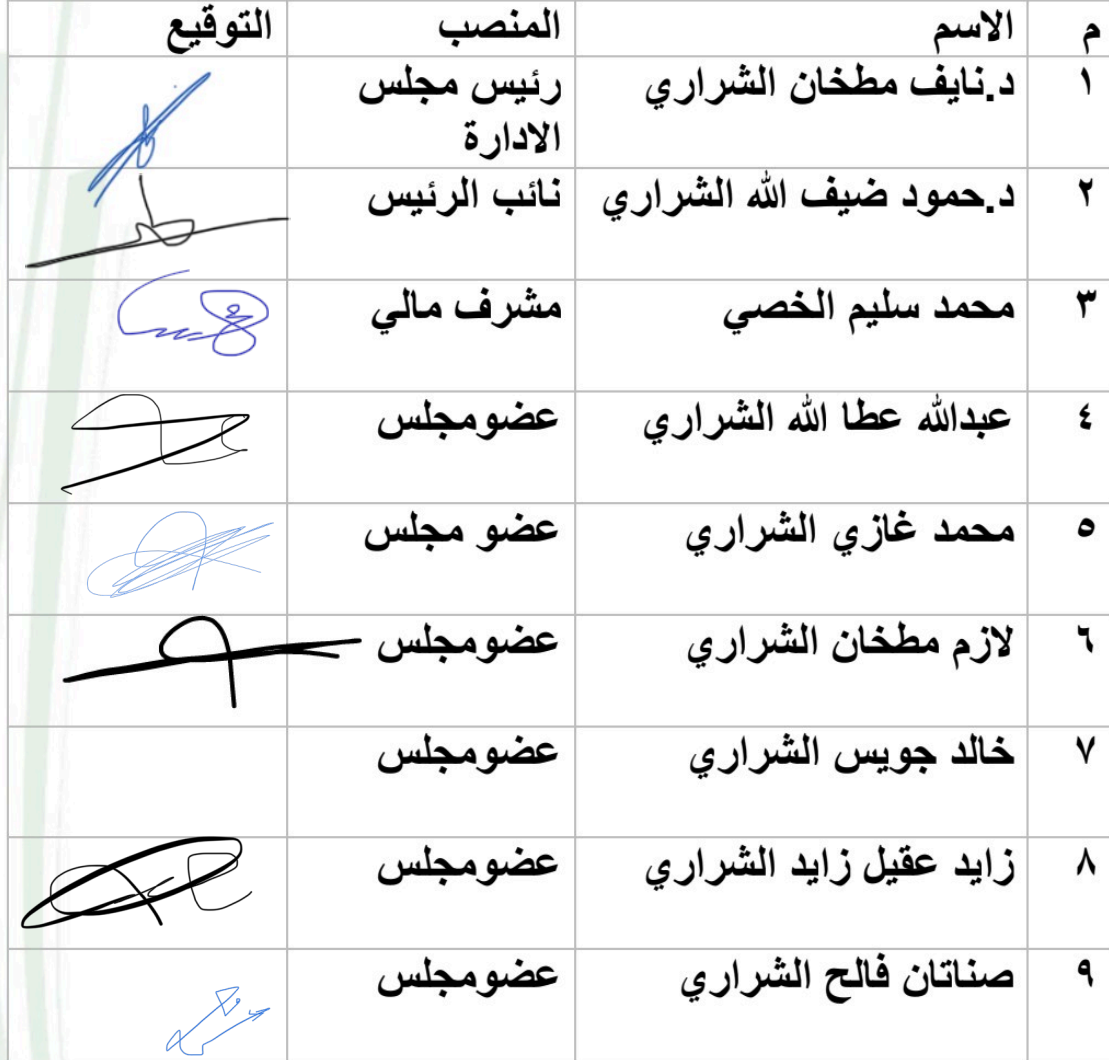 م الاسم المنصب التوقيع
١ د.نايف مطخان الشراري رئيس مجلس
الادارة
٢ د.حمود ضيف الله الشراري نائب الرئيس
٣ محمد سليم الخصي مشرف مالي
٤ عبدالله عطا الله الشراري عضومجلس
٥ محمد غازي الشراري عضو مجلس
٦ لازم مطخان الشراري عضومجلس
٧ خالد جويس الشراري عضومجلس
٨ زايد عقيل زايد الشراري عضومجلس
٩ صناتان فالح الشراري عضومجلس